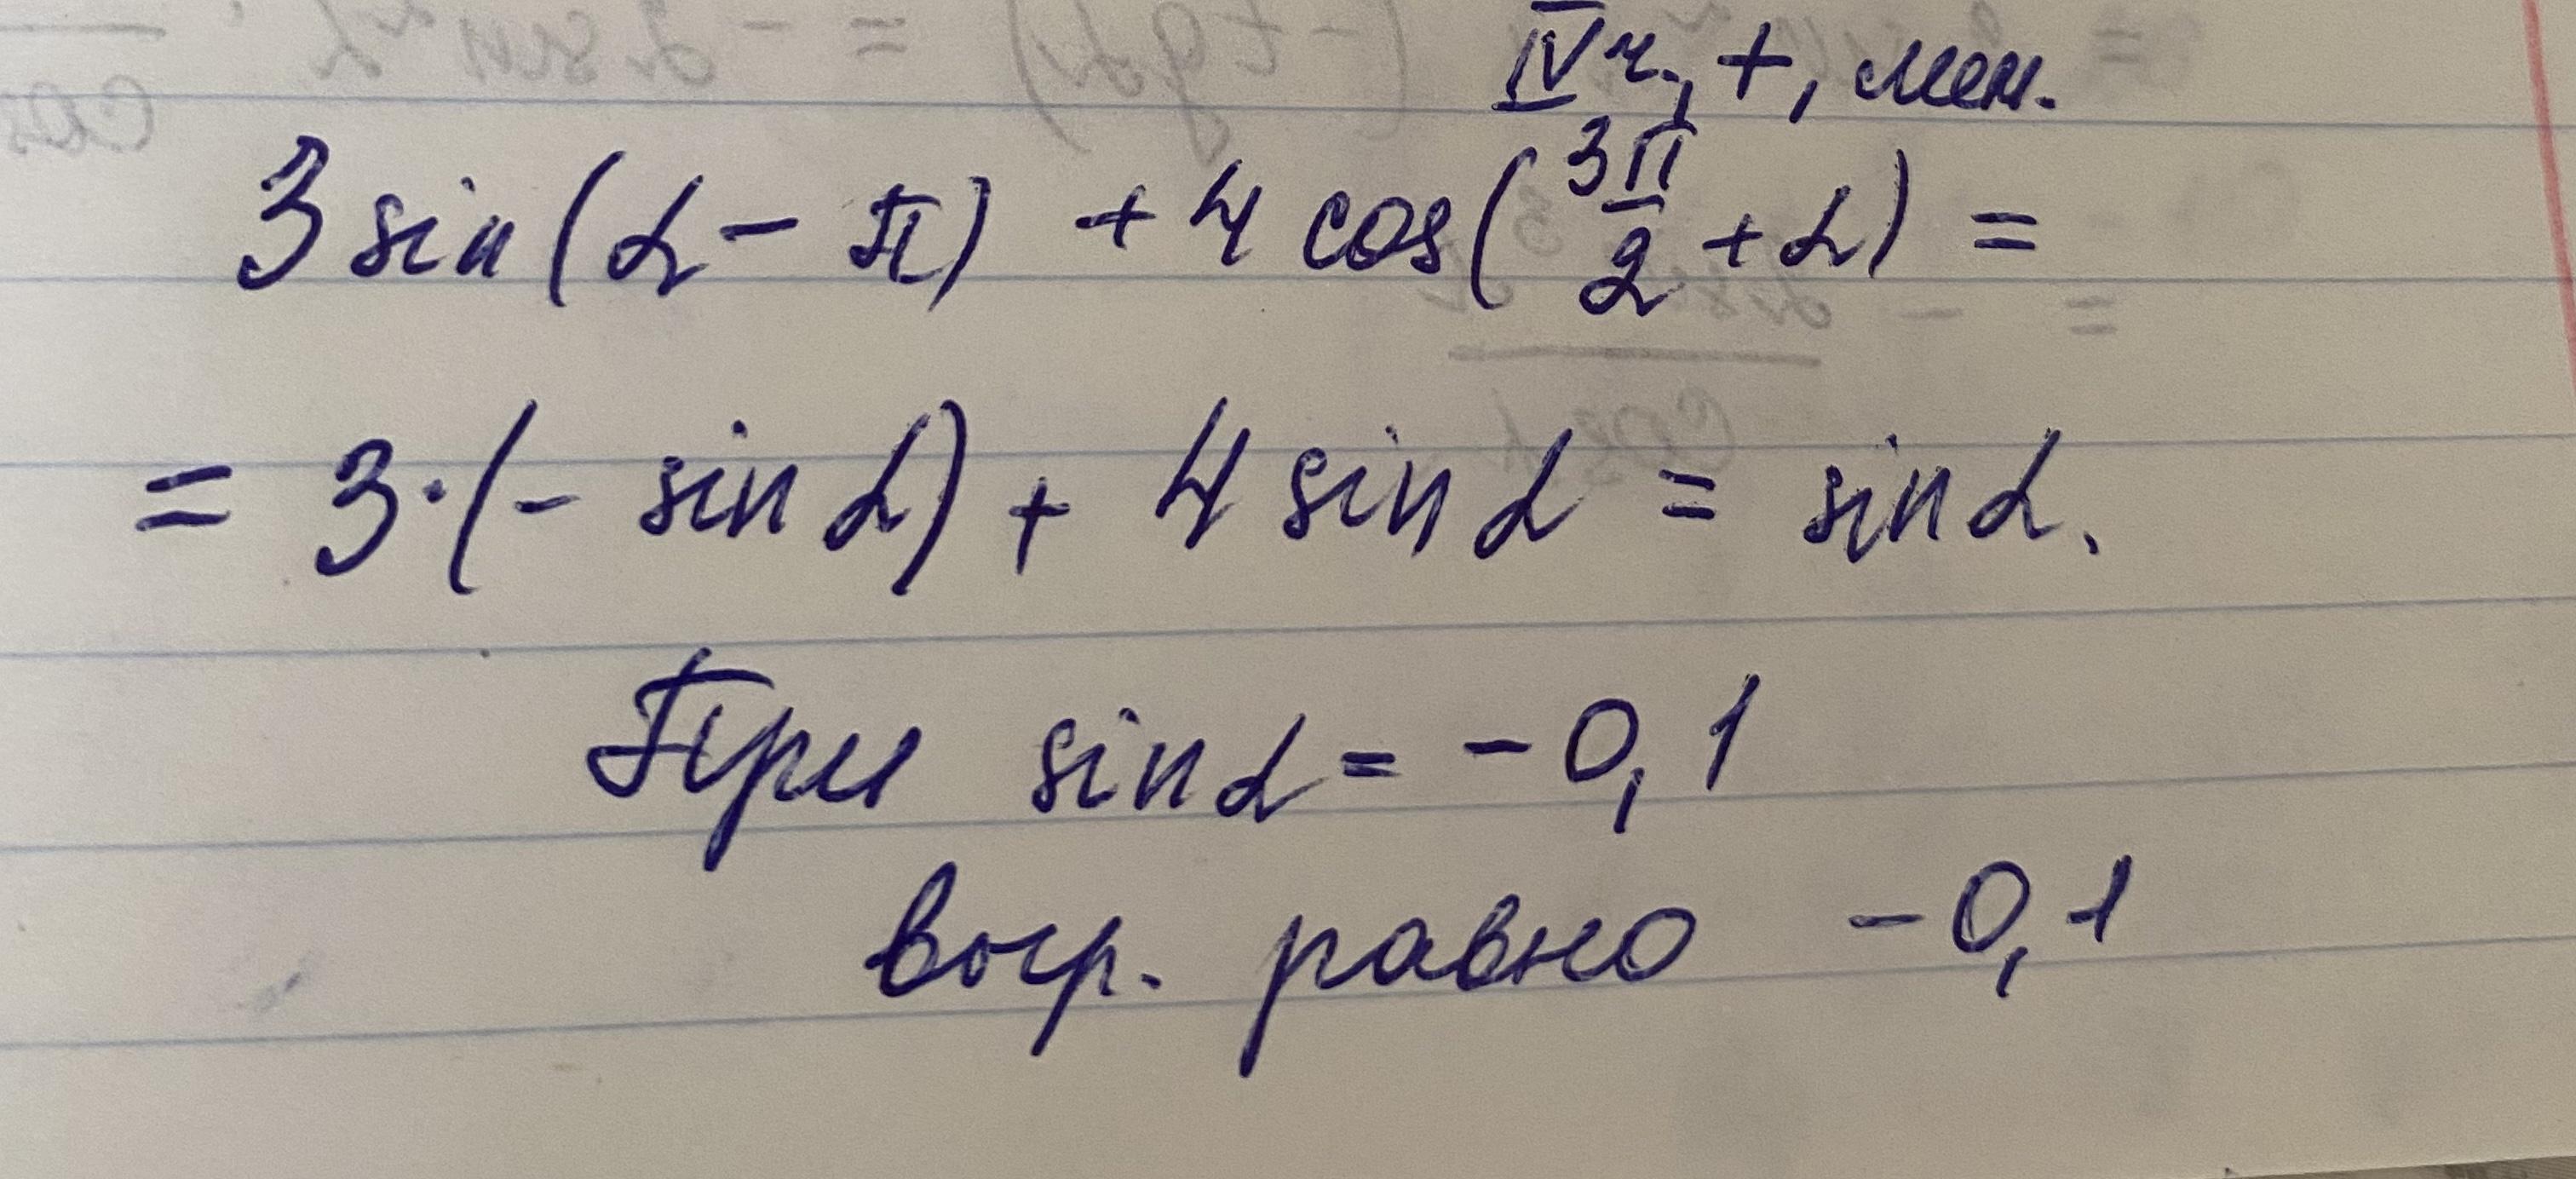 IV ч, +, мен.
3 sin(α - π) + 4 cos(3π/2 + α) =
= 3·(- sin α) + 4 sin α = sin α.
При sin α = -0,1
выр. равно -0,1